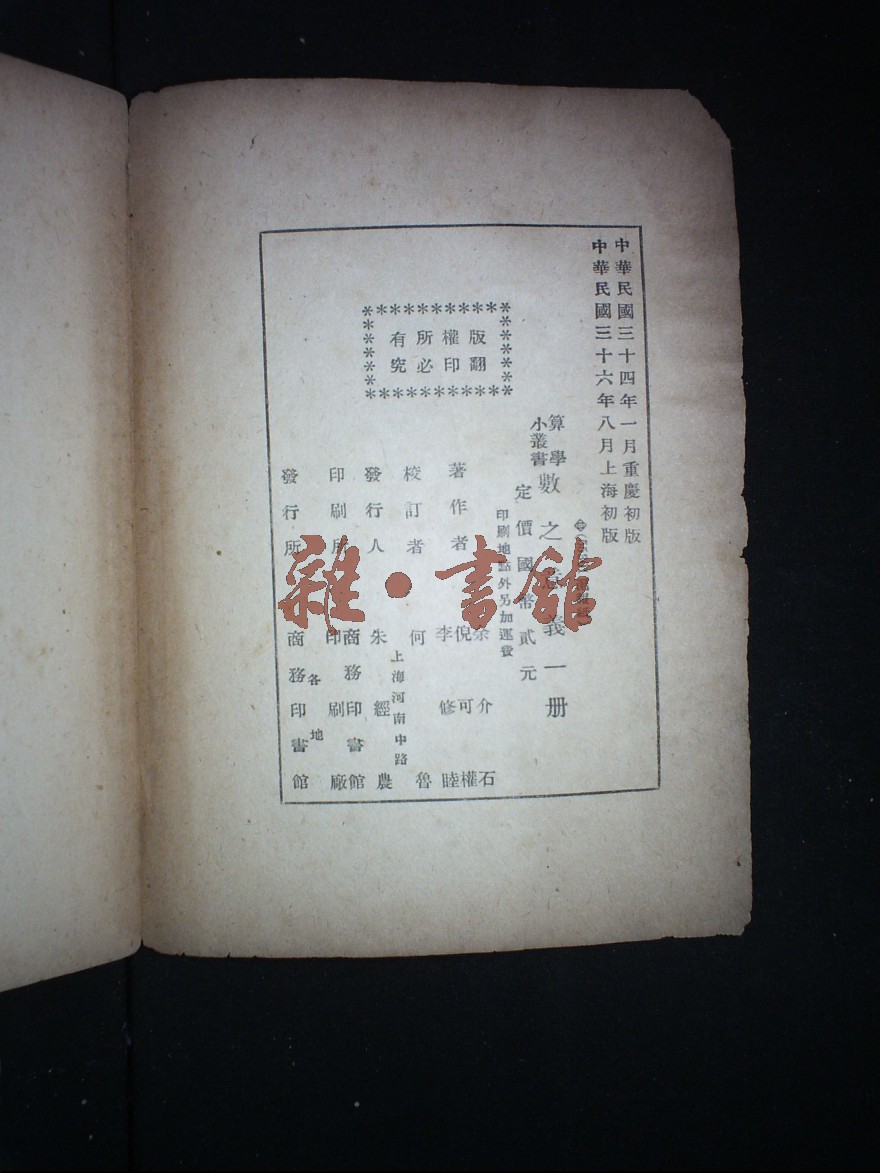 中華民國三十四年一月重慶初版
中華民國三十六年八月上海初版
算學
小叢書
數之 義一册
定價國幣貳元
印刷地點外另加運費
版權所有
翻印必究
著作者
余介石
倪可權
李修睦
校訂者 何魯
發行人 朱經農
上海河南中路
印刷所 商務印書館
印刷廠
發行所 商務印書館
各地
雜·書館